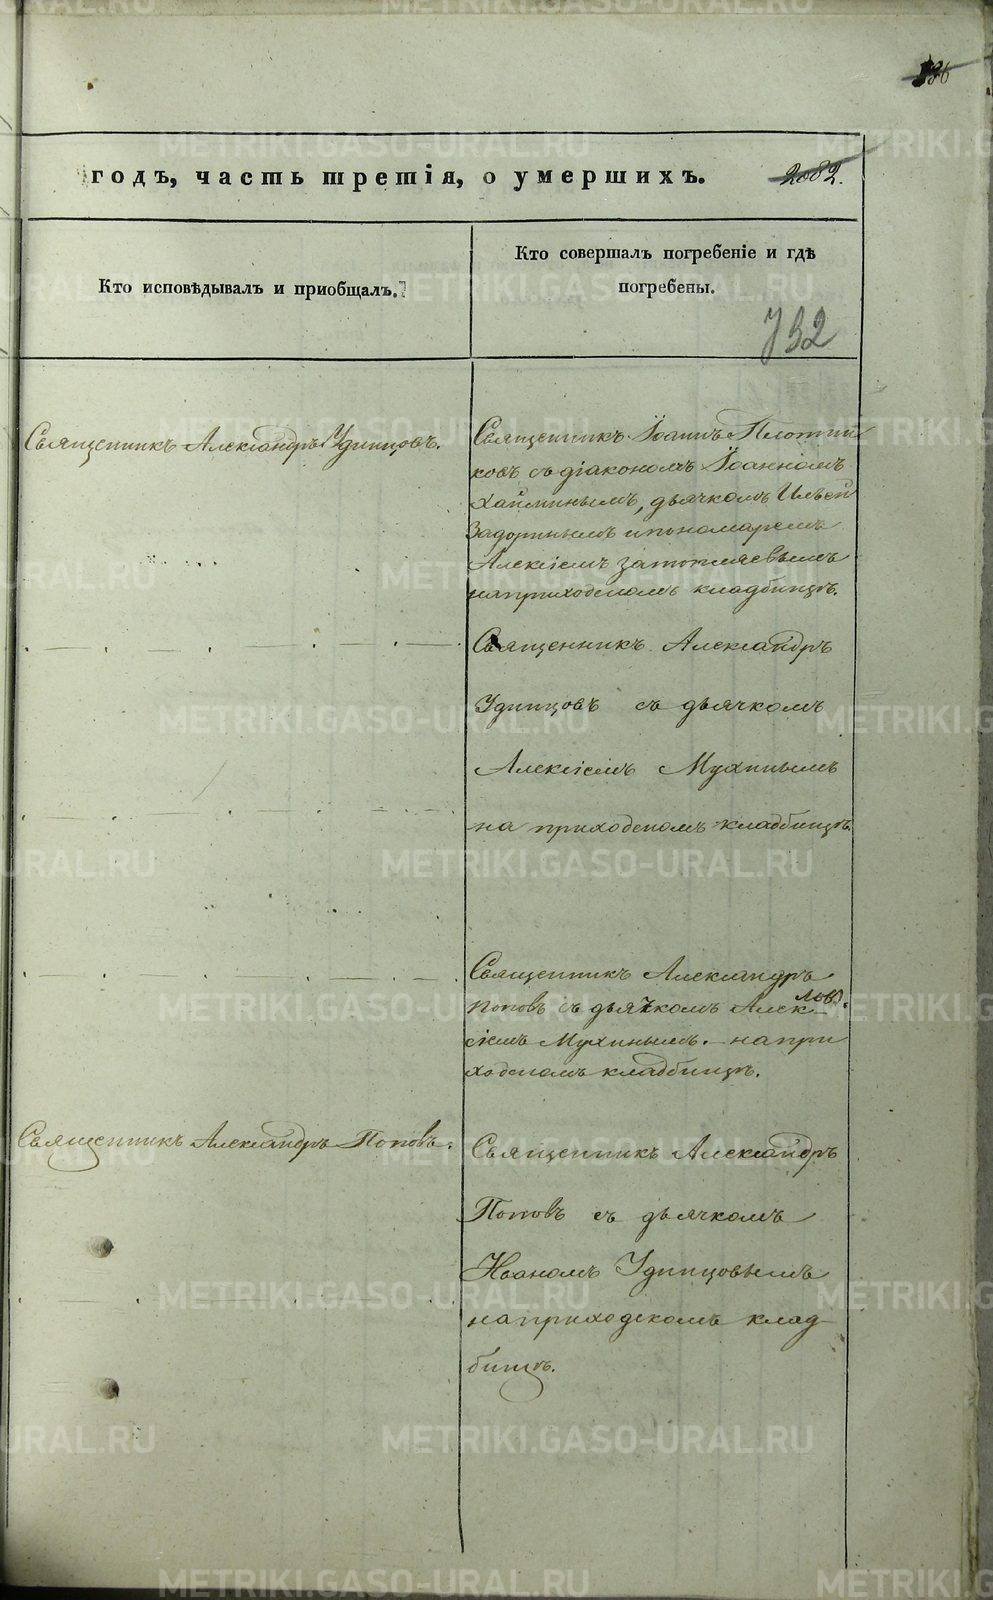 годъ, часть третія, о умершихъ.
2082.
Кто исповѣдывалъ и пріобщалъ.
Кто совершалъ погребеніе и гдѣ
погребены.
732
Священникъ Александръ Удинцовъ.
Священникъ Іоаннъ Плотни
ковъ съ діакономъ Іоанномъ
Хайминымъ, дьячкомъ Ильей
Задоринымъ и пономаремъ
Алексіемъ
на приходскомъ кладбищѣ.
Священникъ Александръ
Удинцовъ съ дьячкомъ
Алексіемъ Мухинымъ
на приходскомъ кладбищѣ.
Священникъ Александръ
Поповъ съ дьячкомъ Алек
сіемъ Мухинымъ. на при
ходскомъ кладбищѣ.
Священникъ Александръ Поповъ.
Священникъ Александръ
Поповъ съ дьячкомъ
Иваномъ Удинцовымъ
на приходскомъ клад-
бищѣ.
METRIKI.GASO-URAL.RU